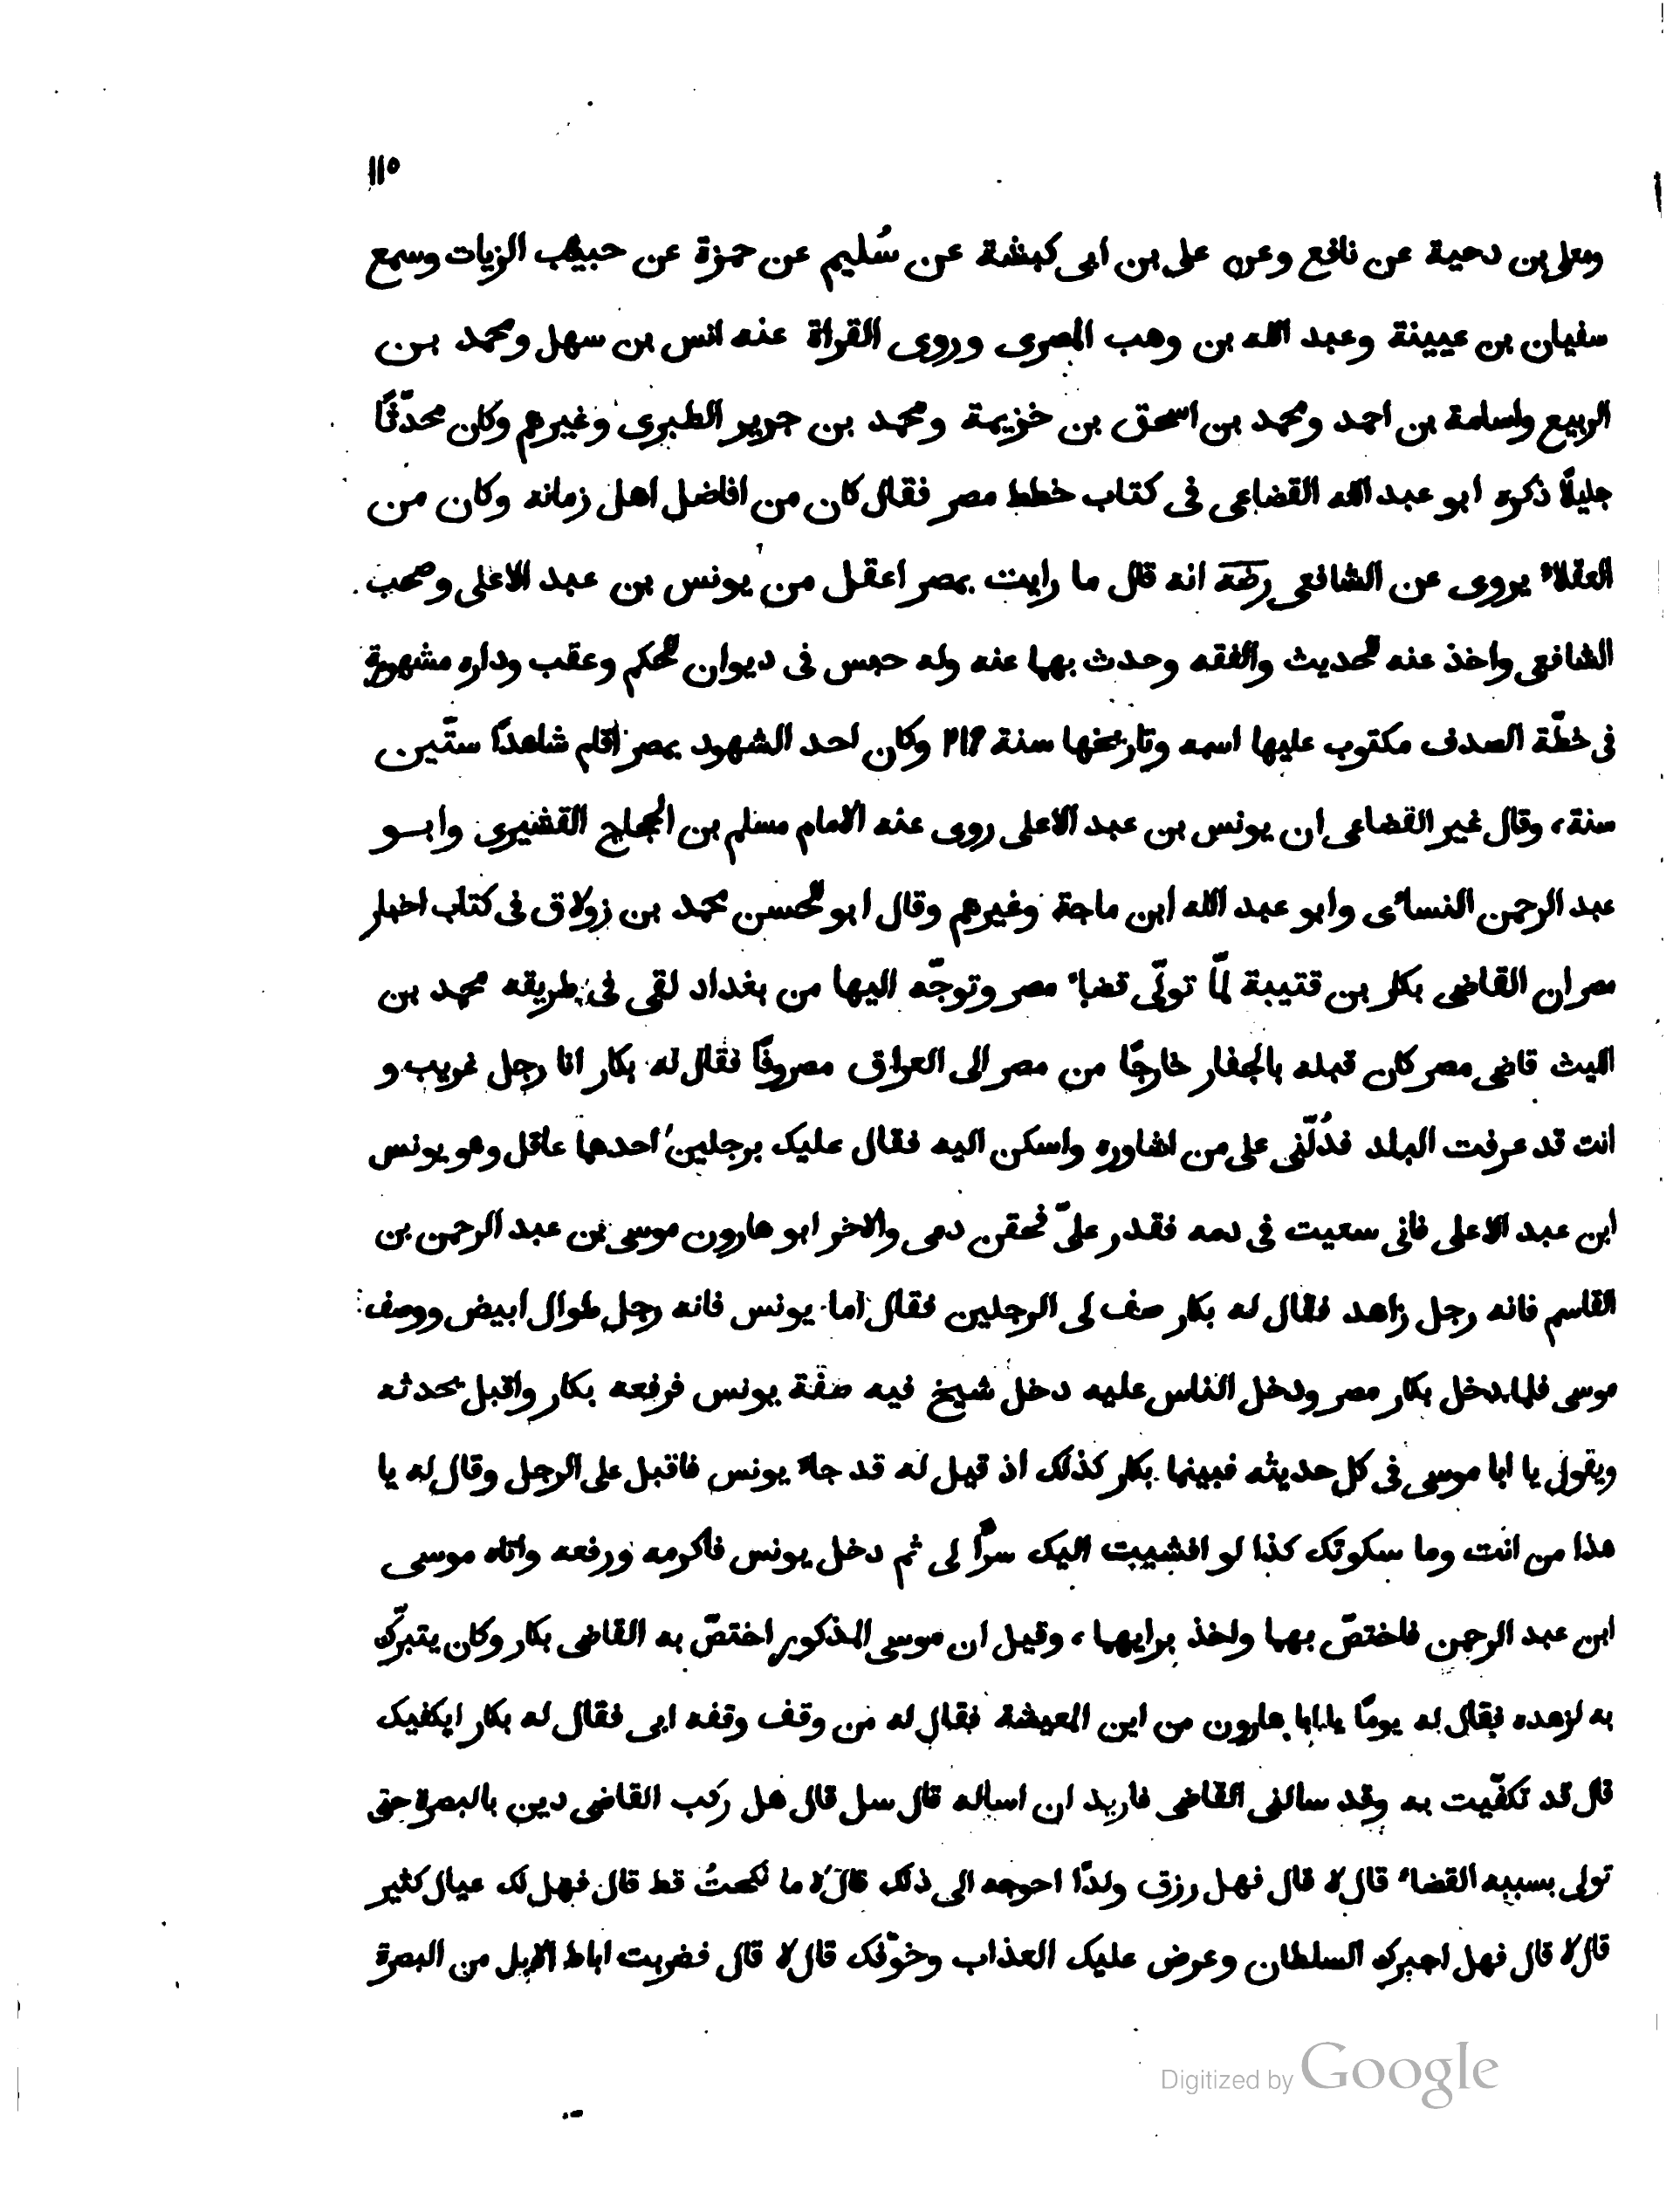 ١١٥
ومعلى بن دحية عن نافع وعن على بن ابى كبشة عن سُليم عن حمزة عن حبيب الزيات وسمع
سفيان بن عيينة وعبد الله بن وهب المصرى وروى القراة عنه انس بن سهل ومحمد بن
الربيع واسامة بن احمد ومحمد بن اسحق بن خزيمة ومحمد بن جرير الطبرى وغيرهم وكان محدّثًا
جليلًا ذكره ابو عبد الله القضاعى فى كتاب خطط مصر فقال كان من افاضل اهل زمانه وكان من
العقلاء يروى عن الشافعى رضه انه قال ما رايت بمصر اعقل من يونس بن عبد الاعلى وصحب
الشافعى واخذ عنه الحديث والفقه وحدث بهما عنه وله حبس فى ديوان الحكم وعقب وداره مشهورة
فى خطّة الصدف مكتوب عليها اسمه وتاريخها سنة ٢١٢ وكان احد الشهود بمصر اقام شاهدًا ستّين
سنة، وقال غير القضاعى ان يونس بن عبد الاعلى روى عنه الامام مسلم بن الحجاج القشيرى وابو
عبد الرحمن النسائى وابو عبد الله ابن ماجة وغيرهم وقال ابو الحسن محمد بن زولاق فى كتاب اخبار
مصر ان القاضى بكار بن قتيبة لمّا تولّى قضاء مصر وتوجّه اليها من بغداد لقى فى طريقه محمد بن
الليث قاضى مصر كان قبله بالجفار خارجًا من مصر الى العراق مصروفًا فقال له بكار انا رجل غريب و
انت قد عرفت البلد فدُلّنى على من اشاوره واسكن اليه فقال عليك برجلين احدهما عاقل وهو يونس
ابن عبد الاعلى فانى سعيت فى دمه فقدر علىّ فحقن دمى والاخر ابو هارون موسى بن عبد الرحمن بن
القاسم فانه رجل زاهد فقال له بكار صف لى الرجلين فقال اما يونس فانه رجل طوال ابيض ووصف
موسى فلما دخل بكار مصر ودخل الناس عليه دخل شيخ فيه صفة يونس فرفعه بكار واقبل يحدثه
ويقول يا ابا موسى فى كل حديثه فبينما بكار كذلك اذ قيل له قد جاء يونس فاقبل على الرجل وقال له يا
هذا من انت وما سكوتك كذا لو افشيت اليك سرًّا لى ثم دخل يونس فاكرمه ورفعه واتاه موسى
ابن عبد الرحمن فاختصّ بهما واخذ برايهما، وقيل ان موسى المذكور اختصّ به القاضى بكار وكان يتبرّك
به لزهده فقال له يومًا يا ابا هارون من اين المعيشة فقال له من وقف وقفه ابى فقال له بكار ايكفيك
قال قد تكفّيت به وقد سالنى القاضى فاريد ان اساله قال سل قال هل ركب القاضى دين بالبصرة حتى
تولى بسببه القضاء قال لا قال فهل رزق ولدًا احوجه الى ذلك قال لا ما نكحتُ قط قال فهل لك عيال كثير
قال لا قال فهل اجبرك السلطان وعرض عليك العذاب وخوّفك قال لا قال فضربت اباط الابل من البصرة
Digitized by Google